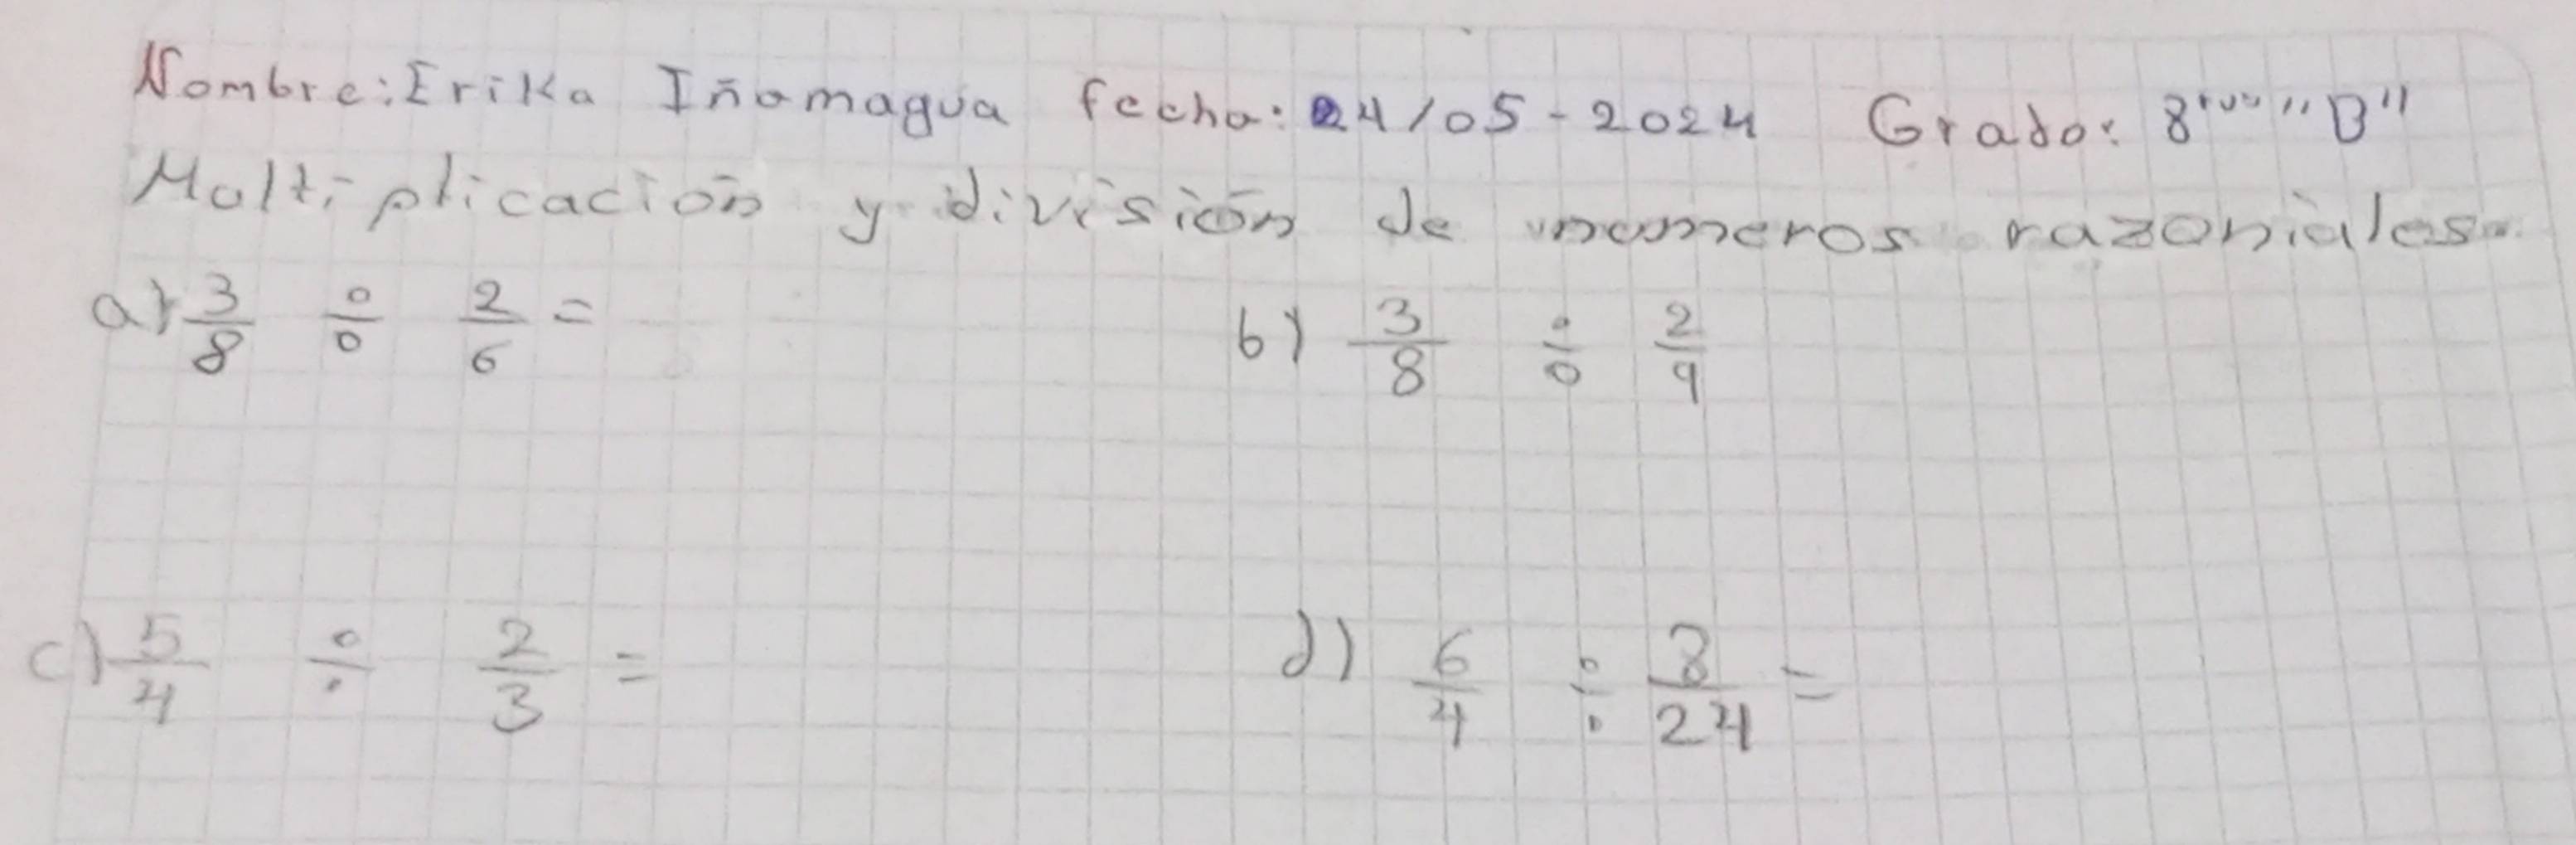 Nombre: Erika Iñamagua fecha: 24/05-2024 Grado: 8 "B"
Multiplicación y división de numeros razoniales.
a) 3/8 ÷ 2/6 = b) 3/8 ÷ 2/9
c) 5/4 ÷ 2/3 = d) 6/4 ÷ 8/24 =